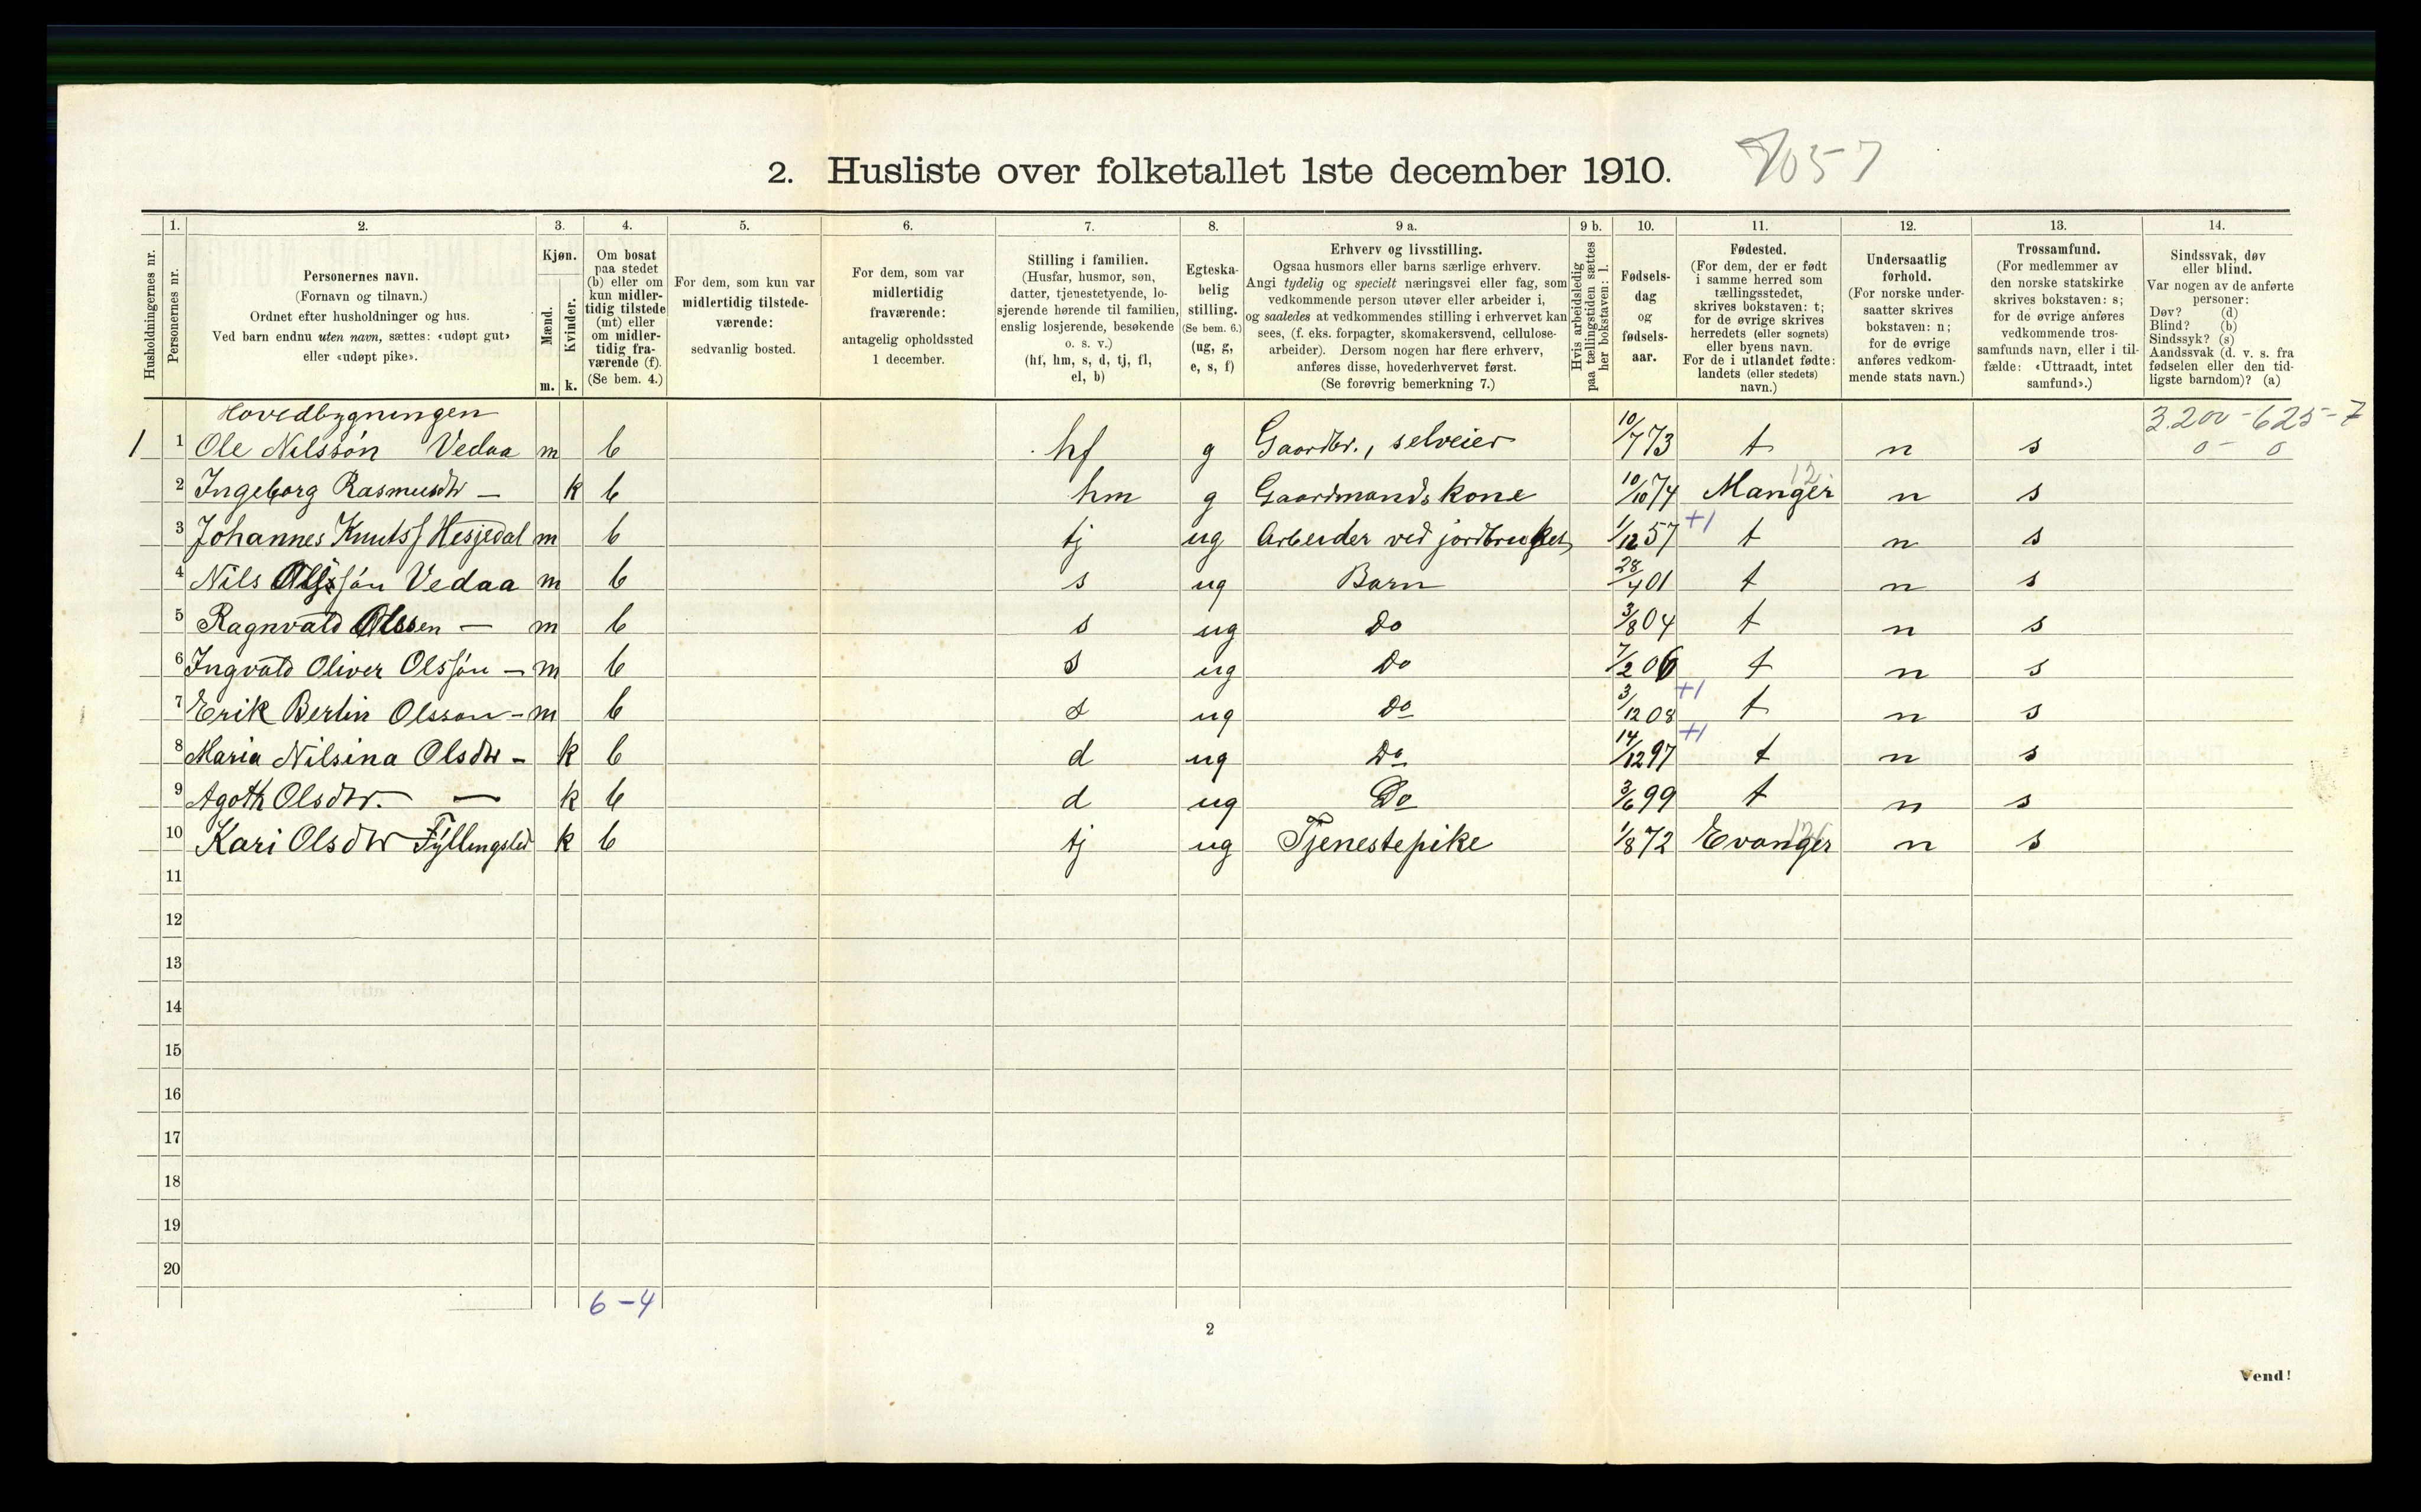 2. Husliste over folketallet 1ste december 1910. 7057
1. 2. 3. 4. 5. 6. 7. 8. 9 a. 9 b. 10. 11. 12. 13. 14.
Husholdningernes nr.
Personernes nr.
Personernes navn.
(Fornavn og tilnavn.)
Ordnet efter husholdninger og hus.
Ved barn endnu uten navn, sættes: «udøpt gut»
eller «udøpt pike».
Kjøn.
Mænd.
Kvinder.
m. k.
Om bosat
paa stedet
(b) eller om
kun midler-
tidig tilstede
(mt) eller
om midler-
tidig fra-
værende (f).
(Se bem. 4.)
For dem, som kun var
midlertidig tilstede-
værende:
sedvanlig bosted.
For dem, som var
midlertidig
fraværende:
antagelig opholdssted
1 december.
Stilling i familien.
(Husfar, husmor, søn,
datter, tjenestetyende, lo-
sjerende hørende til familien,
enslig losjerende, besøkende
o. s. v.)
(hf, hm, s, d, tj, fl,
el, b)
Egteska-
belig
stilling.
(Se bem. 6.)
(ug, g,
e, s, f)
Erhverv og livsstilling.
Ogsaa husmors eller barns særlige erhverv.
Angi tydelig og specielt næringsvei eller fag, som
vedkommende person utøver eller arbeider i,
og saaledes at vedkommendes stilling i erhvervet kan
sees, (f. eks. forpagter, skomakersvend, cellulose-
arbeider). Dersom nogen har flere erhverv,
anføres disse, hovederhvervet først.
(Se forøvrig bemerkning 7.)
Hvis arbeidsledig
paa tællingstiden sættes
her bokstaven: l.
Fødsels-
dag
og
fødsels-
aar.
Fødested.
(For dem, der er født
i samme herred som
tællingsstedet,
skrives bokstaven: t;
for de øvrige skrives
herredets (eller sognets)
eller byens navn.
For de i utlandet fødte:
landets (eller stedets)
navn.)
Undersaatlig
forhold.
(For norske under-
saatter skrives
bokstaven: n;
for de øvrige
anføres vedkom-
mende stats navn.)
Trossamfund.
(For medlemmer av
den norske statskirke
skrives bokstaven: s;
for de øvrige anføres
vedkommende tros-
samfunds navn, eller i til-
fælde: «Uttraadt, intet
samfund».)
Sindssvak, døv
eller blind.
Var nogen av de anførte
personer:
Døv? (d)
Blind? (b)
Sindssyk? (s)
Aandssvak (d. v. s. fra
fødselen eller den tid-
ligste barndom)? (a)
Hovedbygningen 3.200-625-7
1 1 Ole Nilssøn Vedaa m b hf g Gaardbr., selveier 10/7 73 t n s 0 - 0
2 Ingeborg Rasmusdtr — k b hm g Gaardmands kone 10/10 74 Manger 12 n s
3 Johannes Knutss Hesjedal m b tj ug Arbeider ved jordbruket 1/12 57 +1 t n s
4 Nils Olssøn Vedaa m b s ug Barn 28/4 01 t n s
5 Ragnvald Olssen — m b s ug Do 3/8 04 t n s
6 Ingvald Oliver Olssøn — m b s ug Do 7/2 06 t n s
7 Erik Bertin Olsson — m b s ug Do 3/12 08 +1 t n s
8 Maria Nilsina Olsdtr — k b d ug Do 14/12 97 +1 t n s
9 Agoth Olsdtr. — k b d ug Do 3/6 99 t n s
10 Kari Olsdtr Fyllingslid k b tj ug Tjenestepike 1/8 72 Evanger n s
11
12
13
14
15
16
17
18
19
20
6-4
2
Vend!